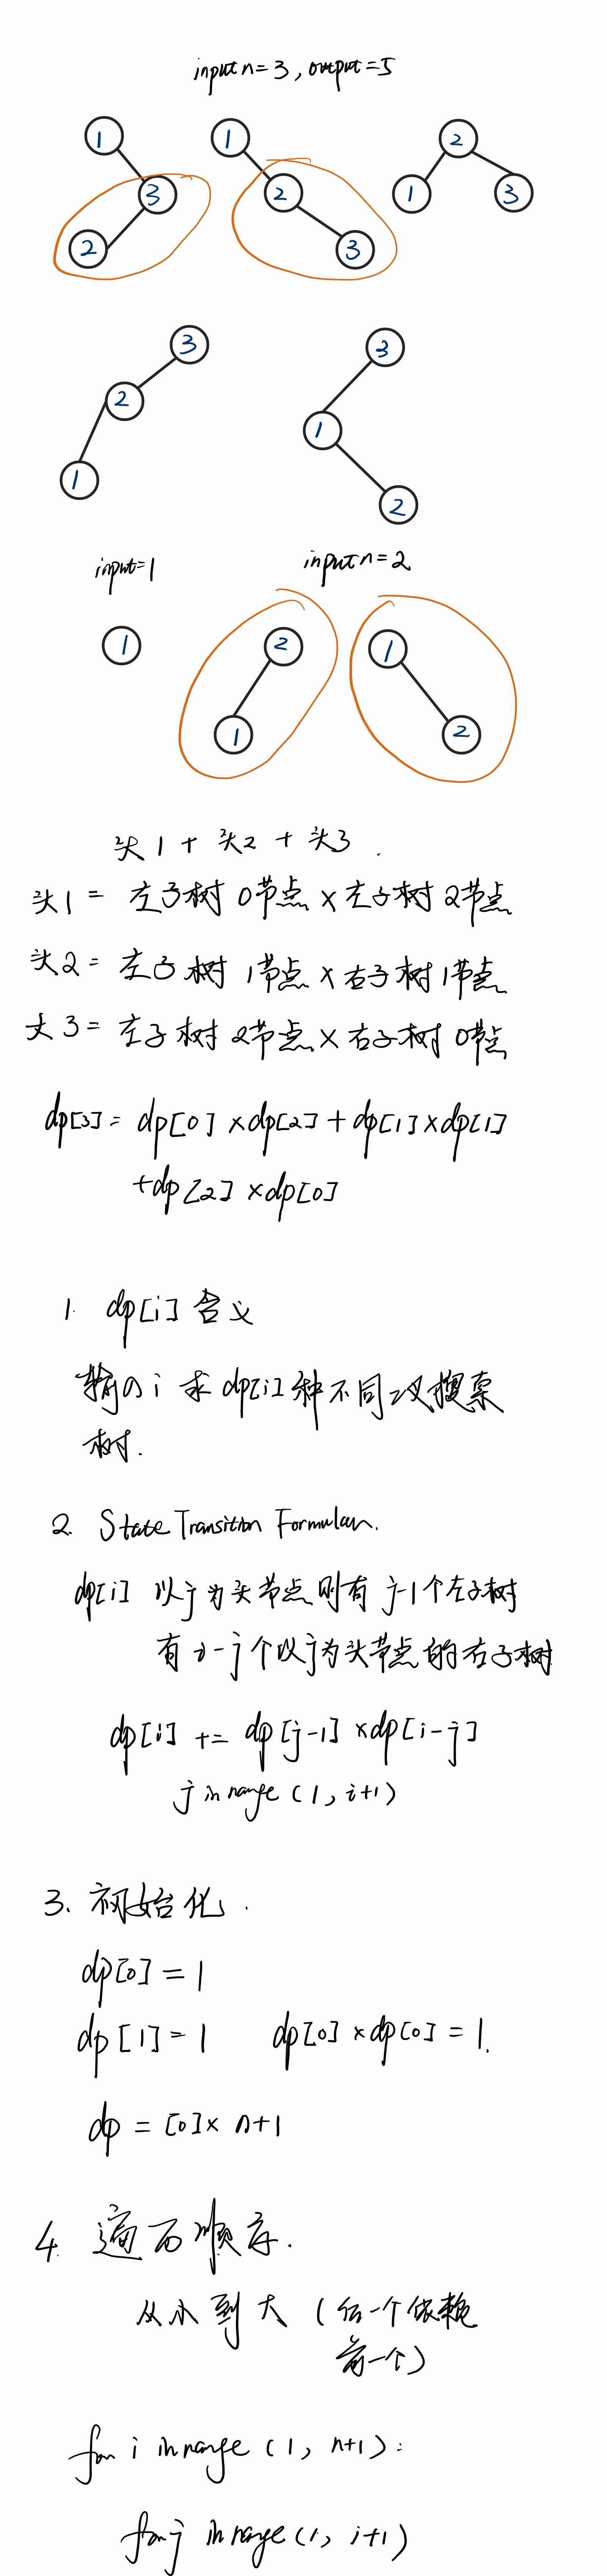 input n=3, output=5
1
1
2
3
2
1
3
2
3
3
3
2
1
1
2
input=1
input n=2
1
2
1
1
2
头1 + 头2 + 头3.
头1 = 左子树 0节点 × 左子树 2节点
头2 = 左子树 1节点 × 右子树 1节点
头3 = 左子树 2节点 × 右子树 0节点
dp[3] = dp[0] ×dp[2] + dp[1]×dp[1]
+dp[2] ×dp[0]
1. dp[i] 含义
输入 i 求 dp[i] 种不同二叉搜索
树.
2. State Transition Formulan.
dp[i] 以j为头节点则有 j-1个左子树
有 i-j个以j为头节点的右子树
dp[i] += dp[j-1] ×dp[i-j]
j in range (1, i+1)
3. 初始化.
dp[0] = 1
dp[1] = 1 dp[0] ×dp[0] = 1.
dp = [0]× n+1
4. 遍历顺序.
从小到大 (后一个依赖
前一个)
for i in range (1, n+1):
for j in range (1, i+1)